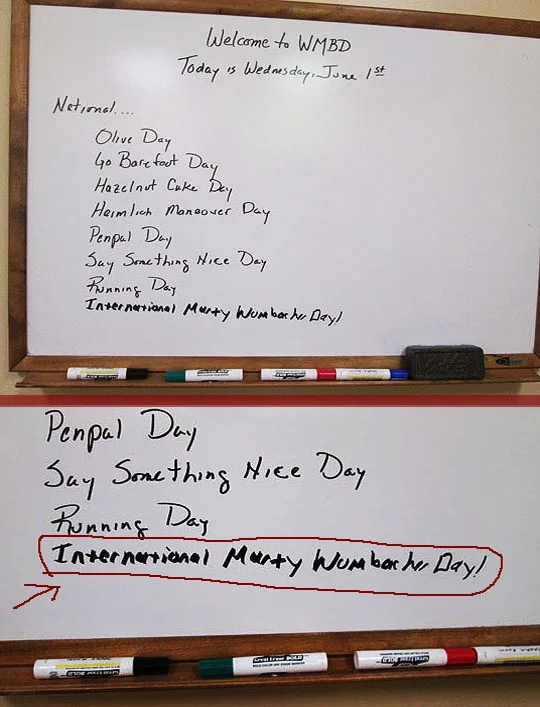 Welcome to WMBD
Today is Wednesday, June 1st
National....
Olive Day
Go Barefoot Day
Hazelnut Cake Day
Heimlich Maneover Day
Penpal Day
Say Something Nice Day
Running Day
International Marty Wombacher Day!
Penpal Day
Say Something Nice Day
Running Day
International Marty Wombacher Day!